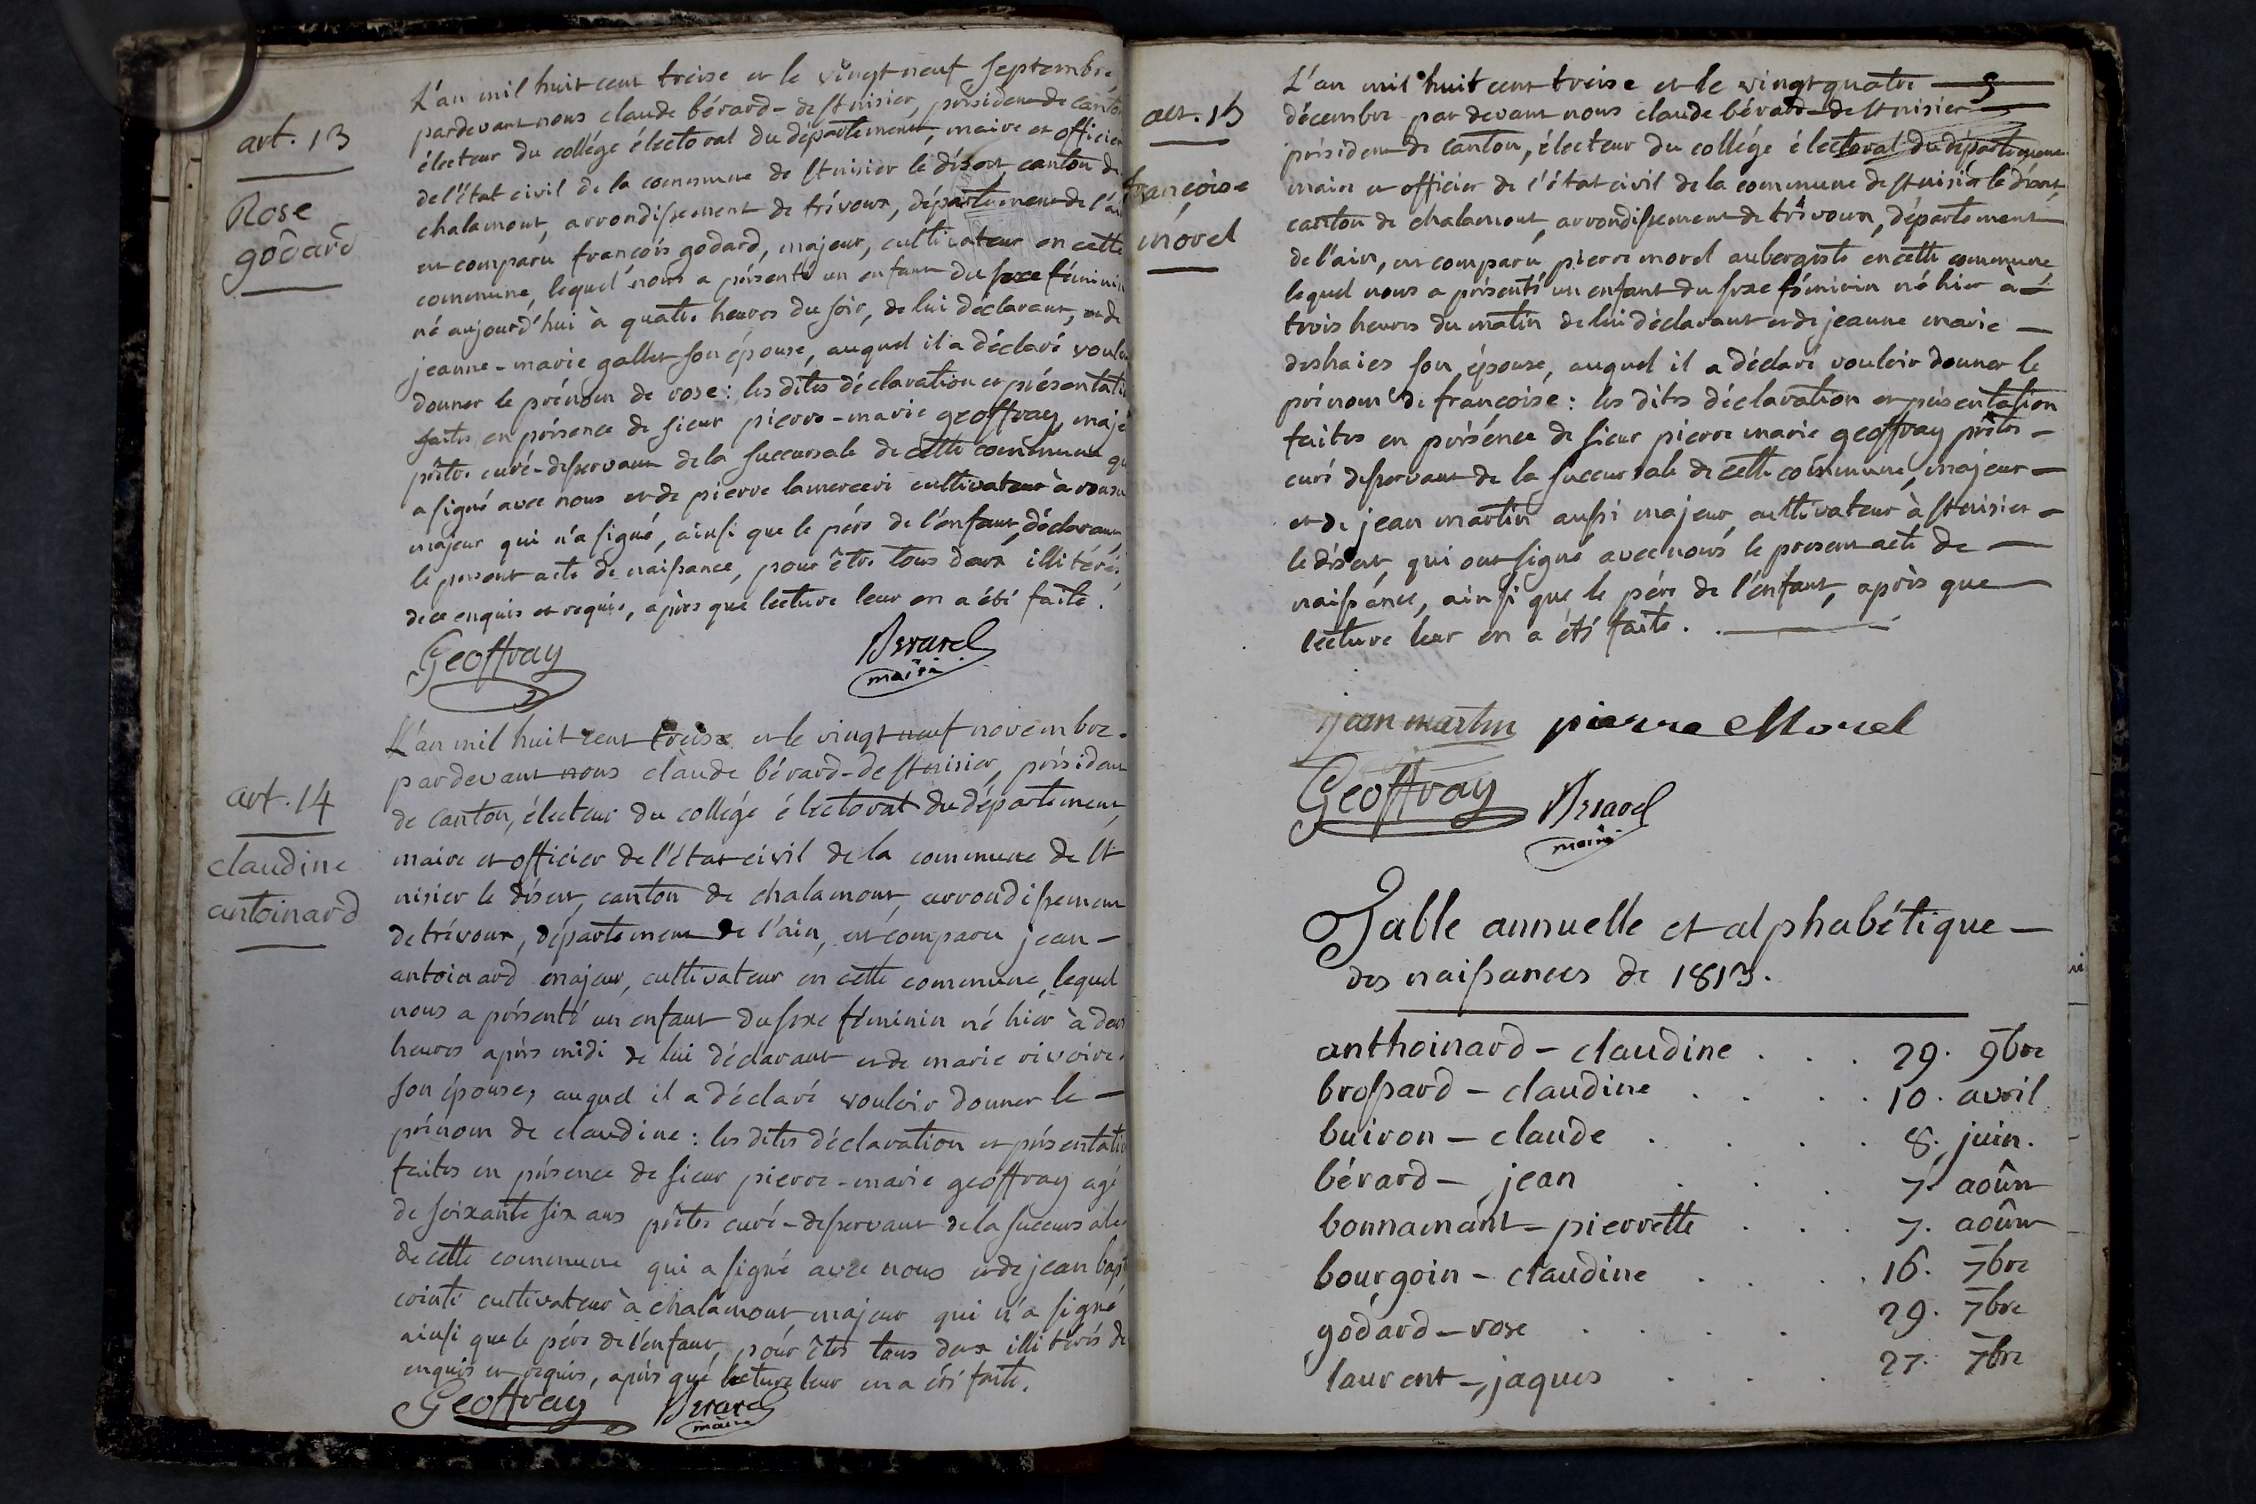 art. 13
Rose
godard
L'an mil huit cent treise et le vingt neuf septembre
pardevant nous claude bérard-de st nisier, président de canton
électeur du collége électoral du département, maire et officier
de l'état civil de la commune de st nisier le désert, canton de
chalamont, arrondissement de trévoux, département de l'ain
est comparu françois godard, majeur, cultivateur en cette
commune, lequel nous a présenté un enfant du sexe féminin
né aujourd'hui à quatre heures du soir, de lui déclarant, et de
jeanne-marie gallet son épouse, auquel il a déclaré vouloi
donner le prénom de rose : les dites déclaration et présentati
faites en présence de sieur pierre-marie geoffray, maje
prêtre curé-desservant de la succursale de cette commune qu
a signé avec nous et de pierre lamercerie cultivateur à
majeur qui n'a signé, ainsi que le père de l'enfant, déclarant
le présent acte de naissance, pour être tous deux illitérés,
de ce enquis et requis, après que lecture leur en a été faite.
Geoffray Berard
maire
art. 14
claudine
antoinard
L'an mil huit cent treise et le vingt neuf novembre.
pardevant nous claude bérard-de st nisier, président
de canton, électeur du collége électoral du département,
maire et officier de l'état civil de la commune de st
nisier le désert, canton de chalamont, arrondissement
de trévoux, département de l'ain, est comparu jean-
antoinard majeur, cultivateur en cette commune, lequel
nous a présenté un enfant du sexe féminin né hier à deux
heures après midi de lui déclarant et de marie rivoire.
son épouse, auquel il a déclaré vouloir donner le —
prénom de claudine : les dites déclaration et présentatio
faites en présence de sieur pierre-marie geoffray agé
de soixante six ans prêtre curé-desservant de la succursale
de cette commune qui a signé avec nous et de jean bapt
cointe cultivateur à chalamont majeur qui n'a signé
ainsi que le père de l'enfant, pour être tous deux illitérés de
enquis et requis, après que lecture leur en a été faite.
Geoffray Berard
maire
act. 15
françoise
morel
L'an mil huit cent treise et le vingt quatre
décembre par devant nous claude bérard-de st nisier
président de canton, électeur du collége électoral du département
maire et officier de l'état civil de la commune de st nisier le désert,
canton de chalamont, arrondissement de trévoux, département
de l'ain, est comparu pierre morel aubergiste en cette commune
lequel nous a présenté un enfant du sexe féminin né hier à —
trois heures du matin de lui déclarant et de jeanne marie —
deshaies son épouse, auquel il a déclaré vouloir donner le
prénom de françoise : les dites déclaration et présentation
faites en présence de sieur pierre marie geoffray prêtre —
curé desservant de la succursale de cette commune, majeur —
et de jean martin aussi majeur cultivateur à st nisier —
le désert, qui ont signé avec nous le present acte de —
naissance, ainsi que le père de l'enfant, après que
lecture leur en a été faite.
jean martin pierre Morel
Geoffray Berard
maire
Table annuelle et alphabétique —
des naissances de 1813.
anthoinard - claudine . . . 29. 9bre
brossard - claudine . . . . 10. avril
buiron - claude . . . . 8. juin.
bérard - jean . . . 7. aoûst
bonnamant - pierrette . . . 7. aoûst
bourgoin - claudine . . . . 16. 7bre
godard - rose . . . . 29. 7bre
laurent - jaques . . . 27. 7bre